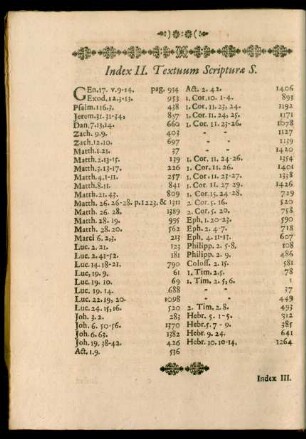 Index II. Textuum Scripturæ S.
GEn.17. v.9-14. pag. 954
Exod.12.3-13. 953
Psalm.116.3. 418
Jerem.31.31-34. 837
Dan.7.13,14. 660
Zach.9.9. 403
Zach.12.10. 697
Matth.1.21. 37
Matth.2.13-15. 139
Matth.3.13-17. 226
Matth.4.1-11. 257
Matth.8.11. 841
Matth.21.43. 809
Matth. 26. 26-28. p.1223. & 1311
Matth. 26. 28. 1389
Matth. 28. 19. 955
Matth. 28. 20. 562
Marci 6. 2,3. 213
Luc. 2. 21. 123
Luc. 2. 41-52. 181
Luc. 14. 18-21. 790
Luc. 19. 9. 61
Luc. 19. 10. 69
Luc. 19. 14. 688
Luc. 22. 19, 20. 1098
Luc. 24. 15, 16. 520
Joh. 3. 2. 283
Joh. 6. 50-56. 1370
Joh. 6. 63. 1382
Joh. 19. 38-42. 426
Act. 1. 9. 536
Act. 2. 42. 1406
1. Cor. 10. 1-4. 893
1. Cor. 11. 23, 24. 1192
1. Cor. 11. 24, 25. 1171
1. Cor. 11. 23-26. 1078
" " 1127
" " 1139
" " 1420
1. Cor. 11. 24-26. 1354
1. Cor. 11. 25-26. 1401
1. Cor. 11. 25-27. 1338
1. Cor. 11. 27. 29. 1426
1. Cor. 15. 24-28. 729
2. Cor. 5. 16. 520
2. Cor. 5. 18-21. 768
Eph. 1. 20-23. 590
Eph. 2. 4-7. 718
Eph. 4. 11-15. 607
Philipp. 2. 5-8. 108
Philipp. 2. 9. 486
Coloss. 2. 15. 581
1. Tim. 2. 5. 78
1. Tim. 2. 5, 6. 1
" " 17
" " 449
2. Tim. 2. 8. 493
Hebr. 5. 1-5. 312
Hebr. 5. 7-9. 385
Hebr. 9. 24. 641
Hebr. 10. 10-14. 1264
Index III.